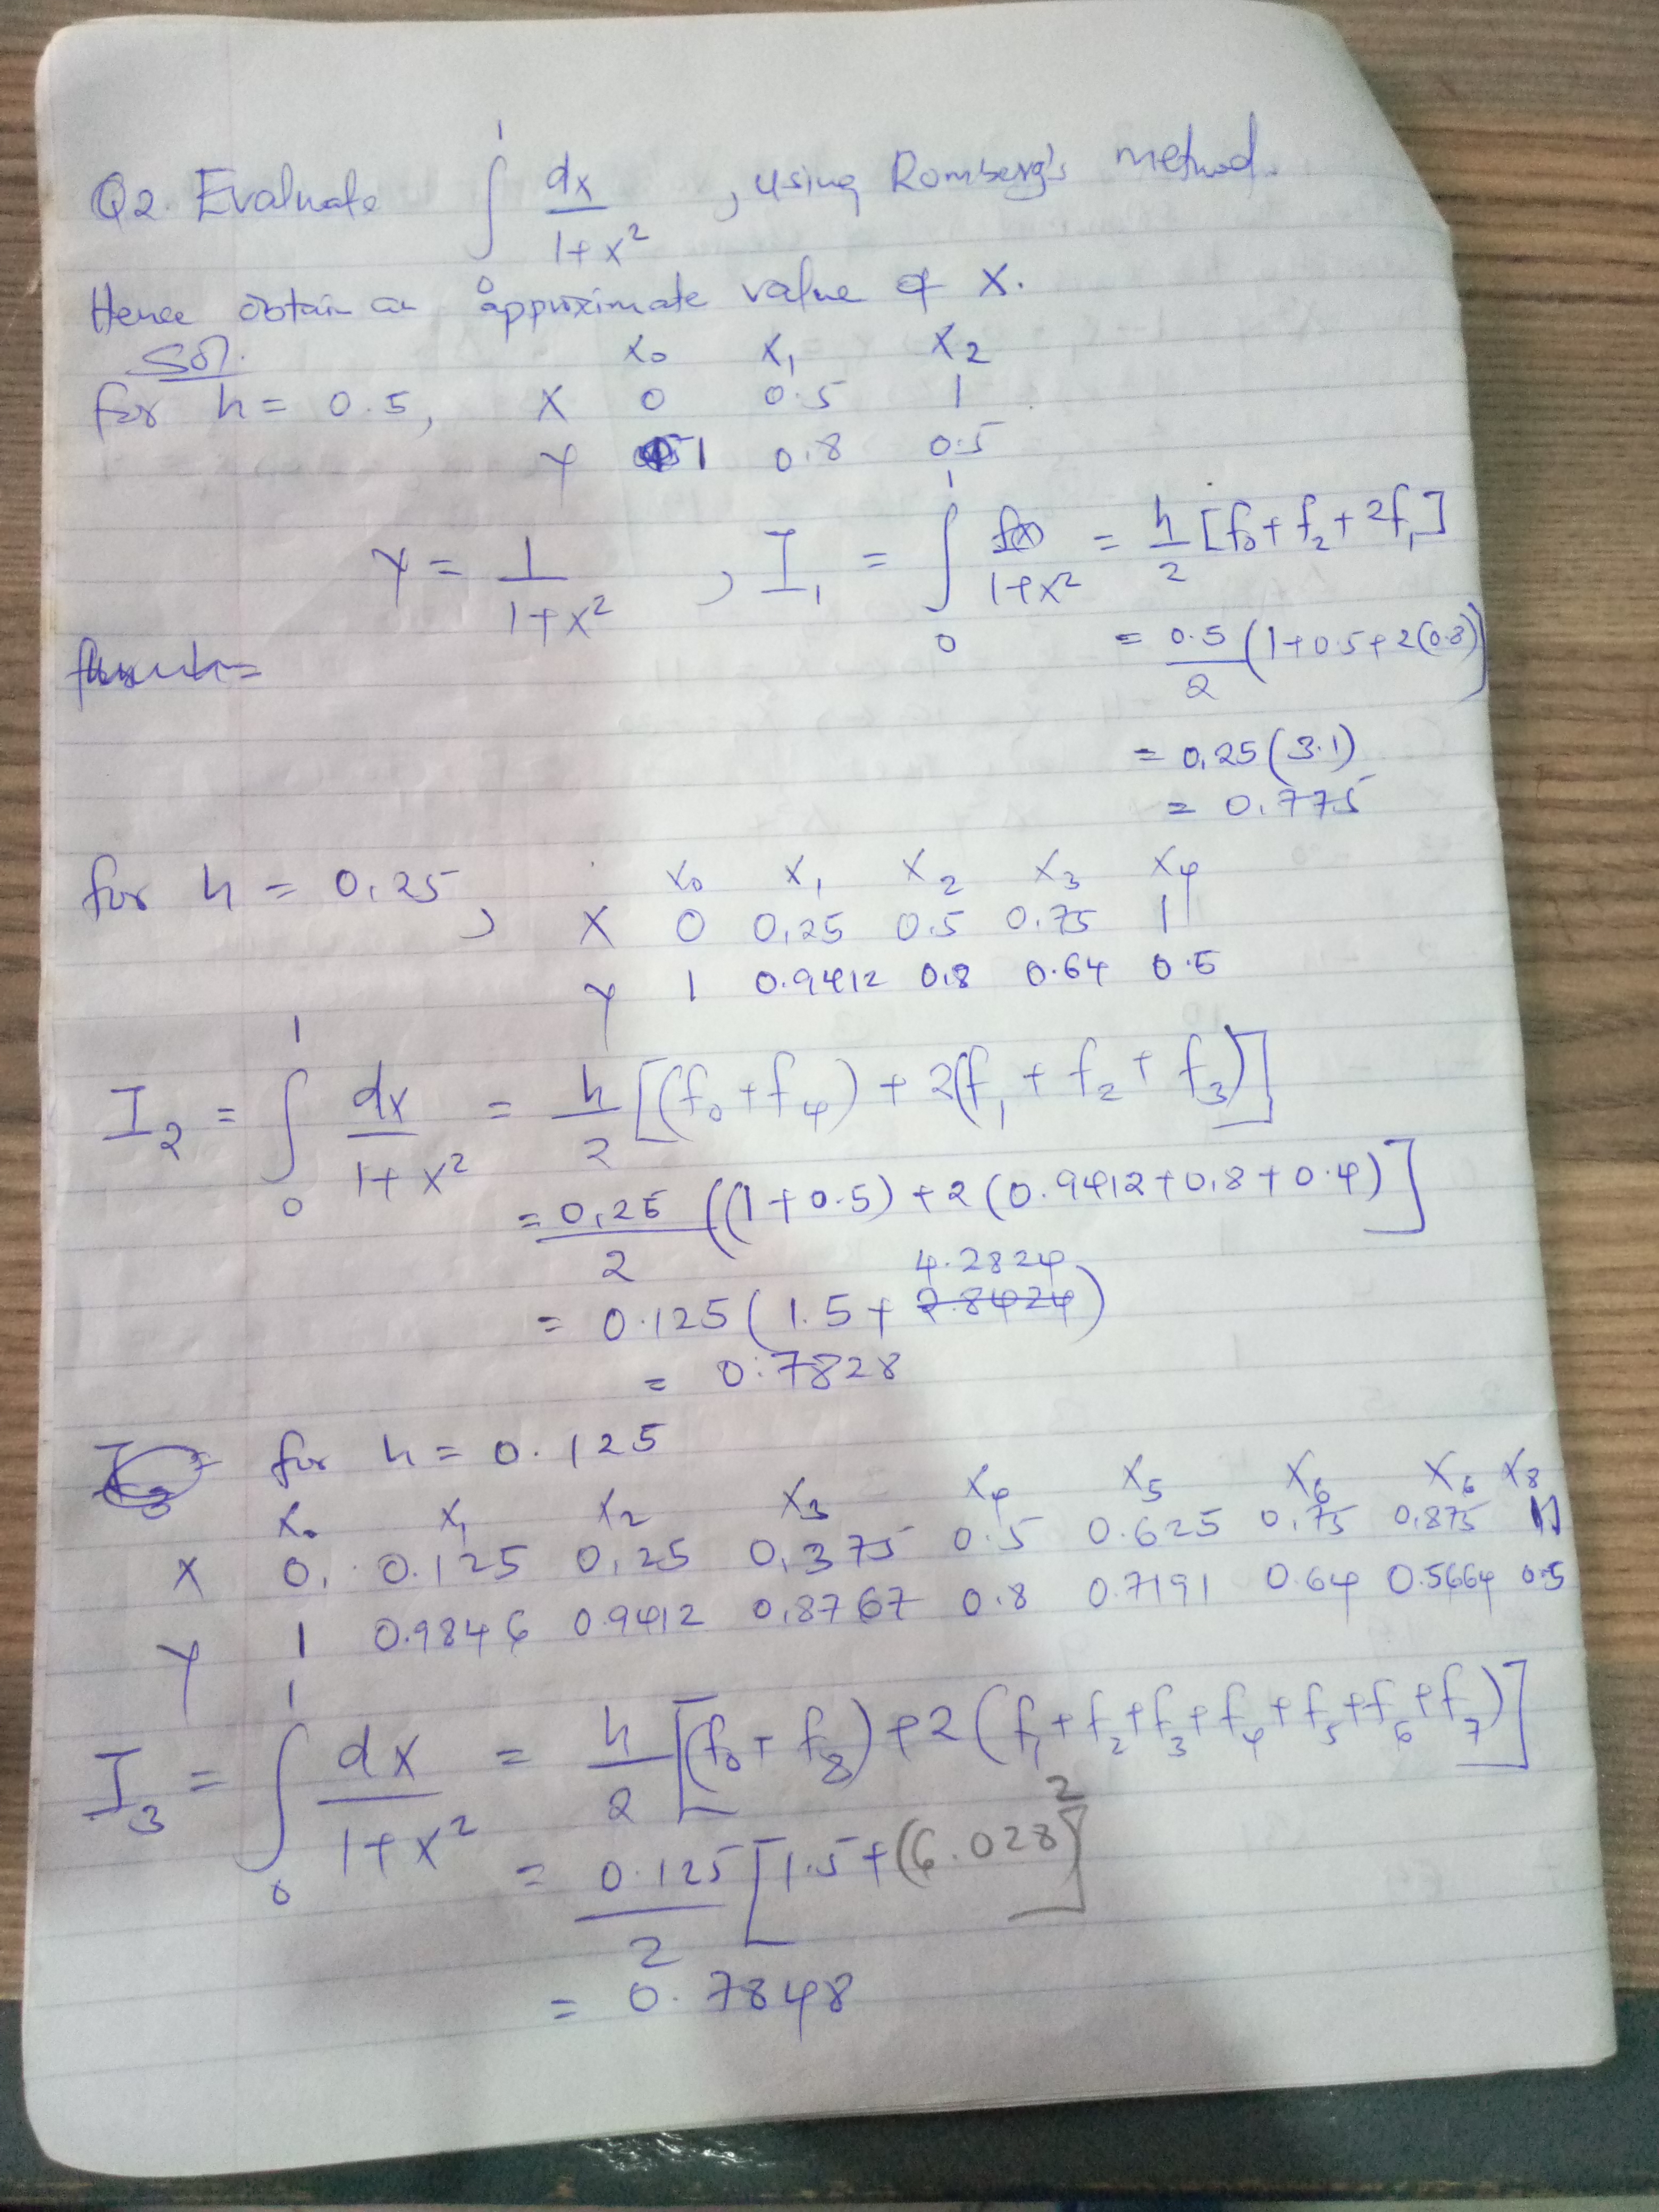 Q2. Evaluate ∫₀¹ dx/(1+x²), using Romberg's method.
Hence obtain an approximate value of x.
Sol.
x₀ x₁ x₂
for h = 0.5, x 0 0.5 1
y 1 0.8 0.5
y = 1/(1+x²), I₁ = ∫₀¹ /(1+x²) = h/2 [f₀ + f₂ + 2f₁]
= 0.5/2 (1+0.5+2(0.8))
= 0.25(3.1)
= 0.775
x₀ x₁ x₂ x₃ x₄
for h = 0.25, x 0 0.25 0.5 0.75 1
y 1 0.9412 0.8 0.64 0.5
I₂ = ∫₀¹ dx/(1+x²) = h/2 [(f₀+f₄) + 2(f₁ + f₂ + f₃)]
= 0.25/2 ((1+0.5) + 2(0.9412+0.8+0.4)]
4.2824
= 0.125(1.5+ 2.8424)
= 0.7828
I₃ = for h = 0.125
x₀ x₁ x₂ x₃ x₄ x₅ x₆ x₆ x₈
x 0. 0.125 0.25 0.375 0.5 0.625 0.75 0.875 1
y 1 0.9846 0.9412 0.8767 0.8 0.7191 0.64 0.5664 0.5
I₃ = ∫₀¹ dx/(1+x²) = h/2 [(f₀+f₈)+2(f₁+f₂+f₃+f₄+f₅+f₆+f₇)]
= 0.125/2 [1.5+(6.028)2]
= 0.7848